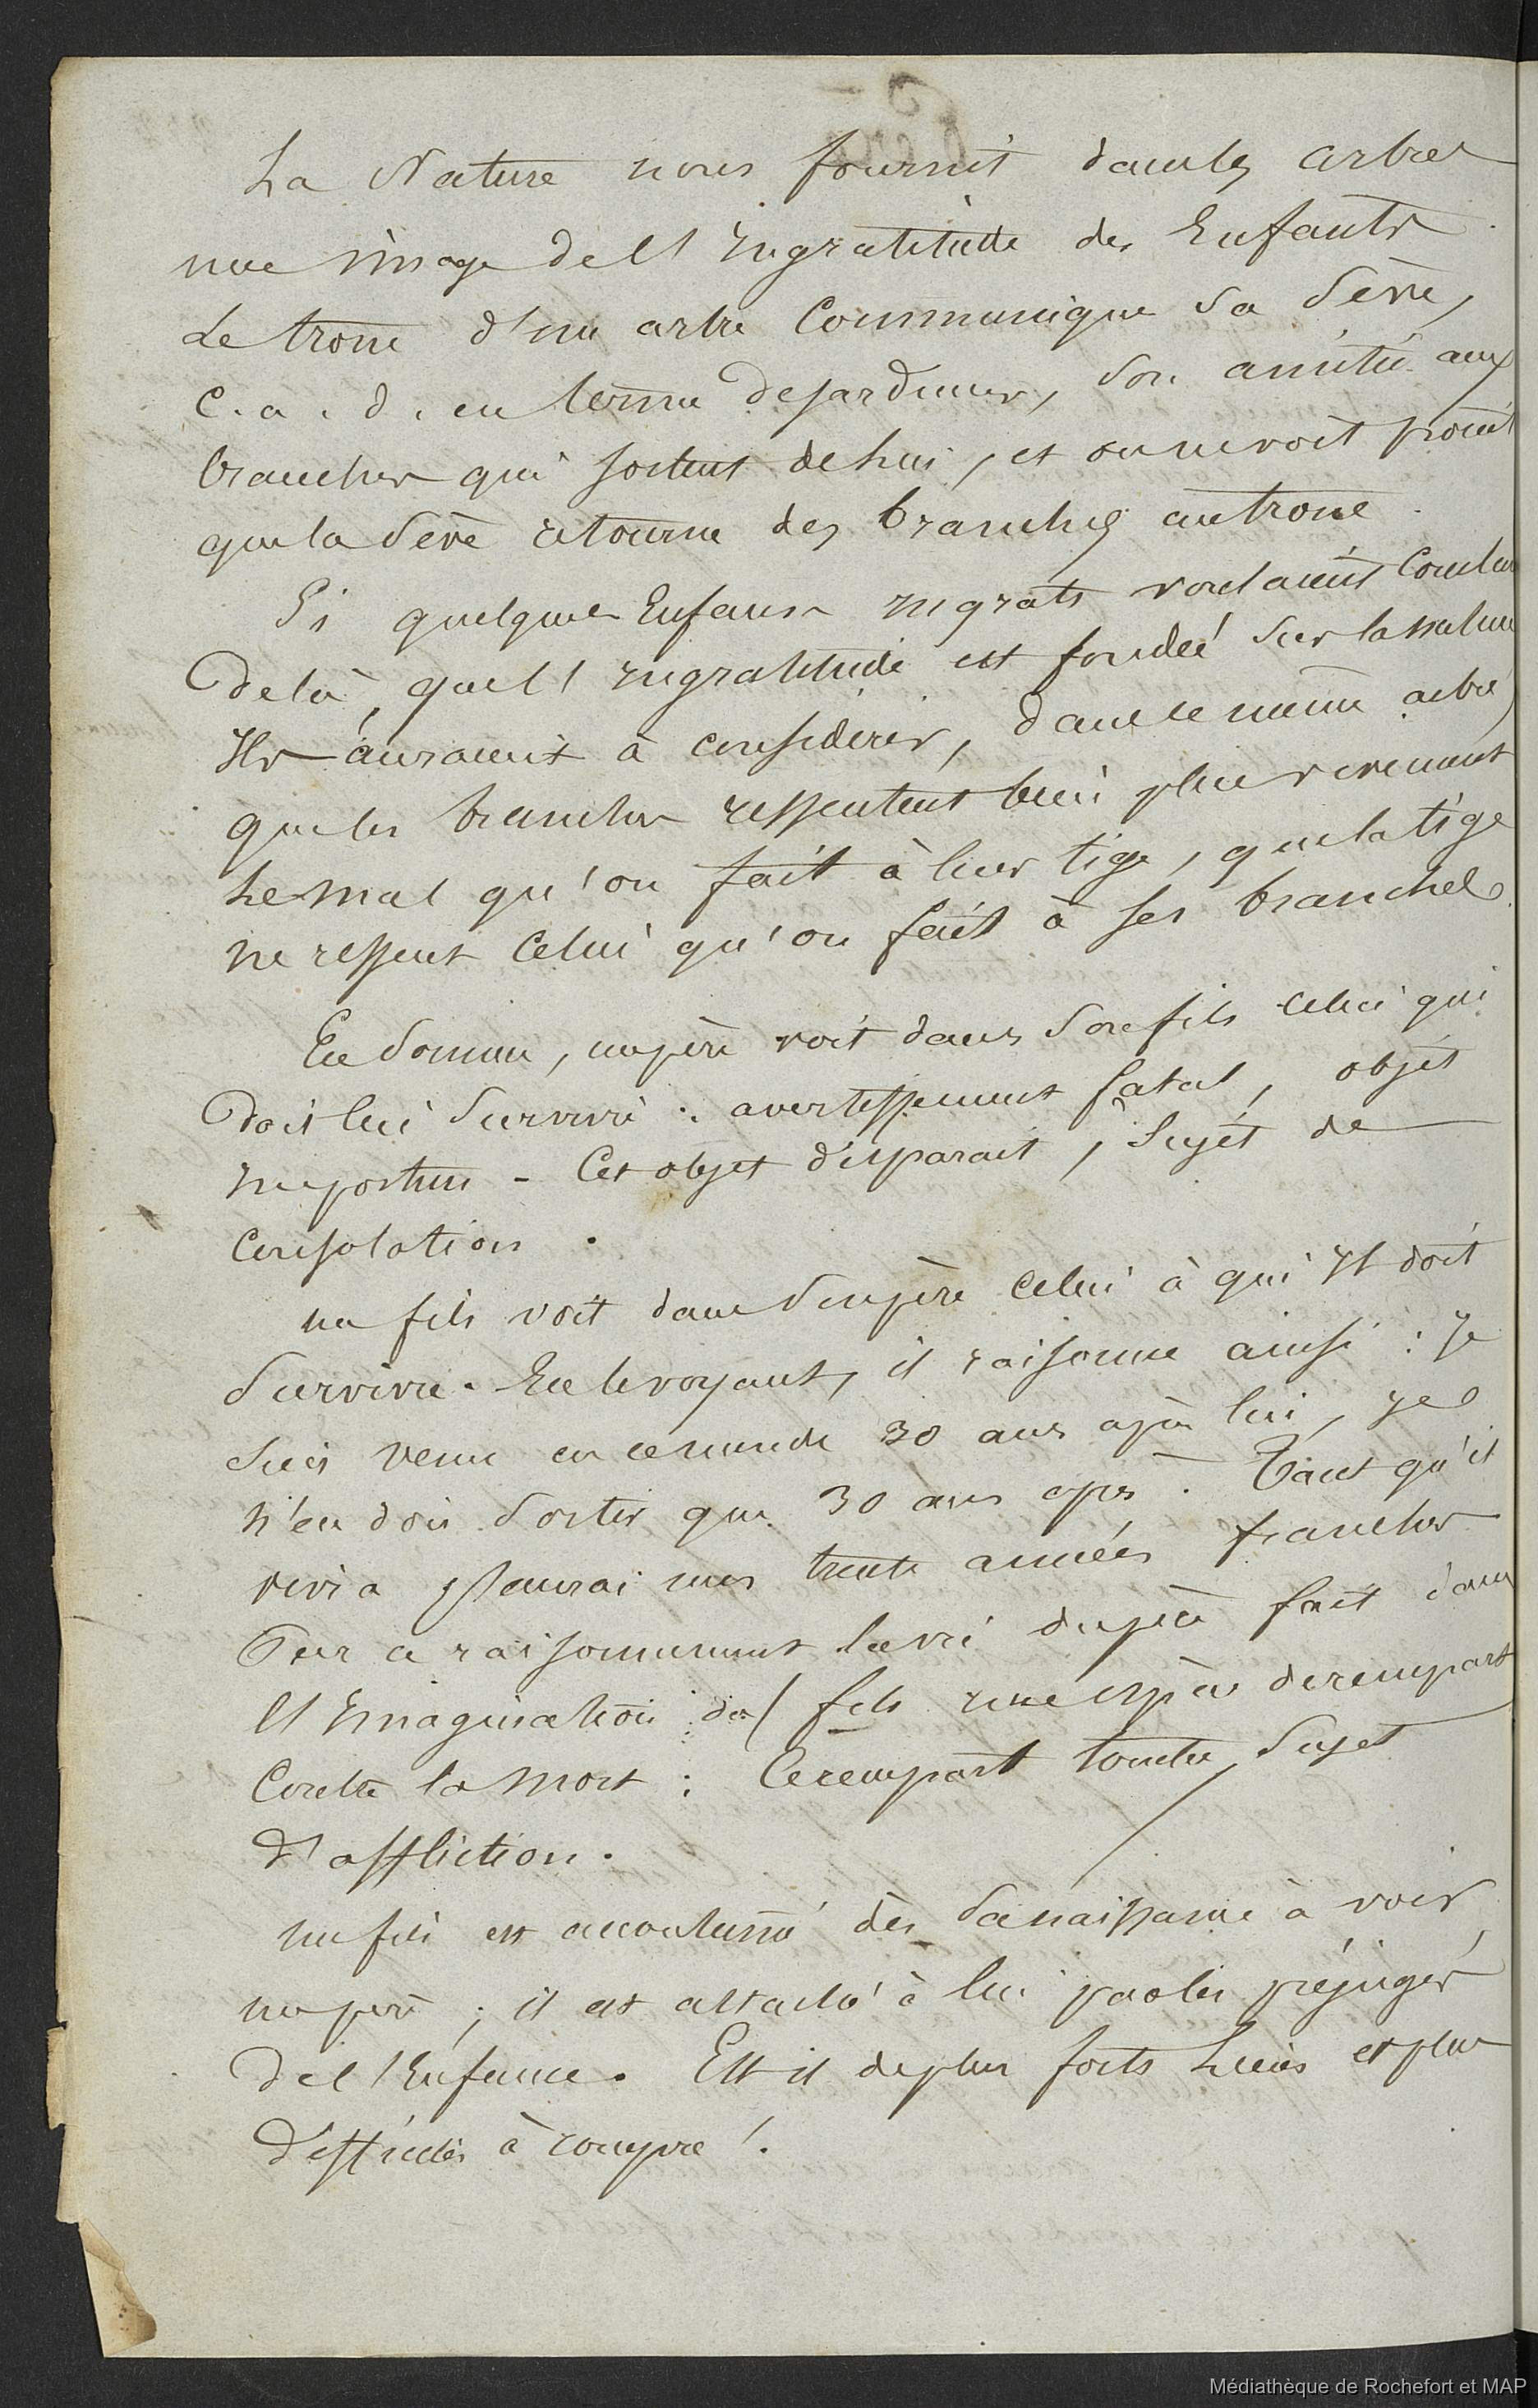 La Nature nous fournit dans les arbres
une image de l'Ingratitude des Enfants
Le tronc d'un arbre Communique Sa Sève,
C. a. d. en terme de jardinier, Son amitié aux
branches qui sortent de lui, et on ne voit point
que la Sève retourne des branches au tronc.
Si quelques Enfans Ingrats voulaient Conclure
De là, que l'Ingratitude est fondée Sur la nature
Ils auraient à considérer, dans ce même arbre,
que les branches ressentent bien plus vivement
Le mal qu'on fait à leur tige, que la tige
ne ressent Celui qu'on fait à ses branches.
En Somme, un père voit dans Son fils celui qui
Doit lui Survivre : avertissement fatal, objet
Importun - Cet objet disparait, Sujet de
Consolation.
un fils voit dans Son père Celui à qui Il doit
Survivre. En le voyant, il raisonne ainsi : Je
Suis venu en ce monde 30 ans après lui, Je
n'en dois Sortir que 30 ans après. Tant qu'il
vivra J'aurai mes trente années franches
Par ce raisonnement la vie du père fait dans
l'Imagination du fils une espèce de rempart
Contre la Mort : Ce rempart tombe, Sujet
D'affliction.
un fils est accoutumé dès Sa naissance à voir
un père ; il est attaché à lui par les préjugés
De l'Enfance. Est il de plus forts Liens et plus
Difficiles à rompre !.
Médiathèque de Rochefort et MAP